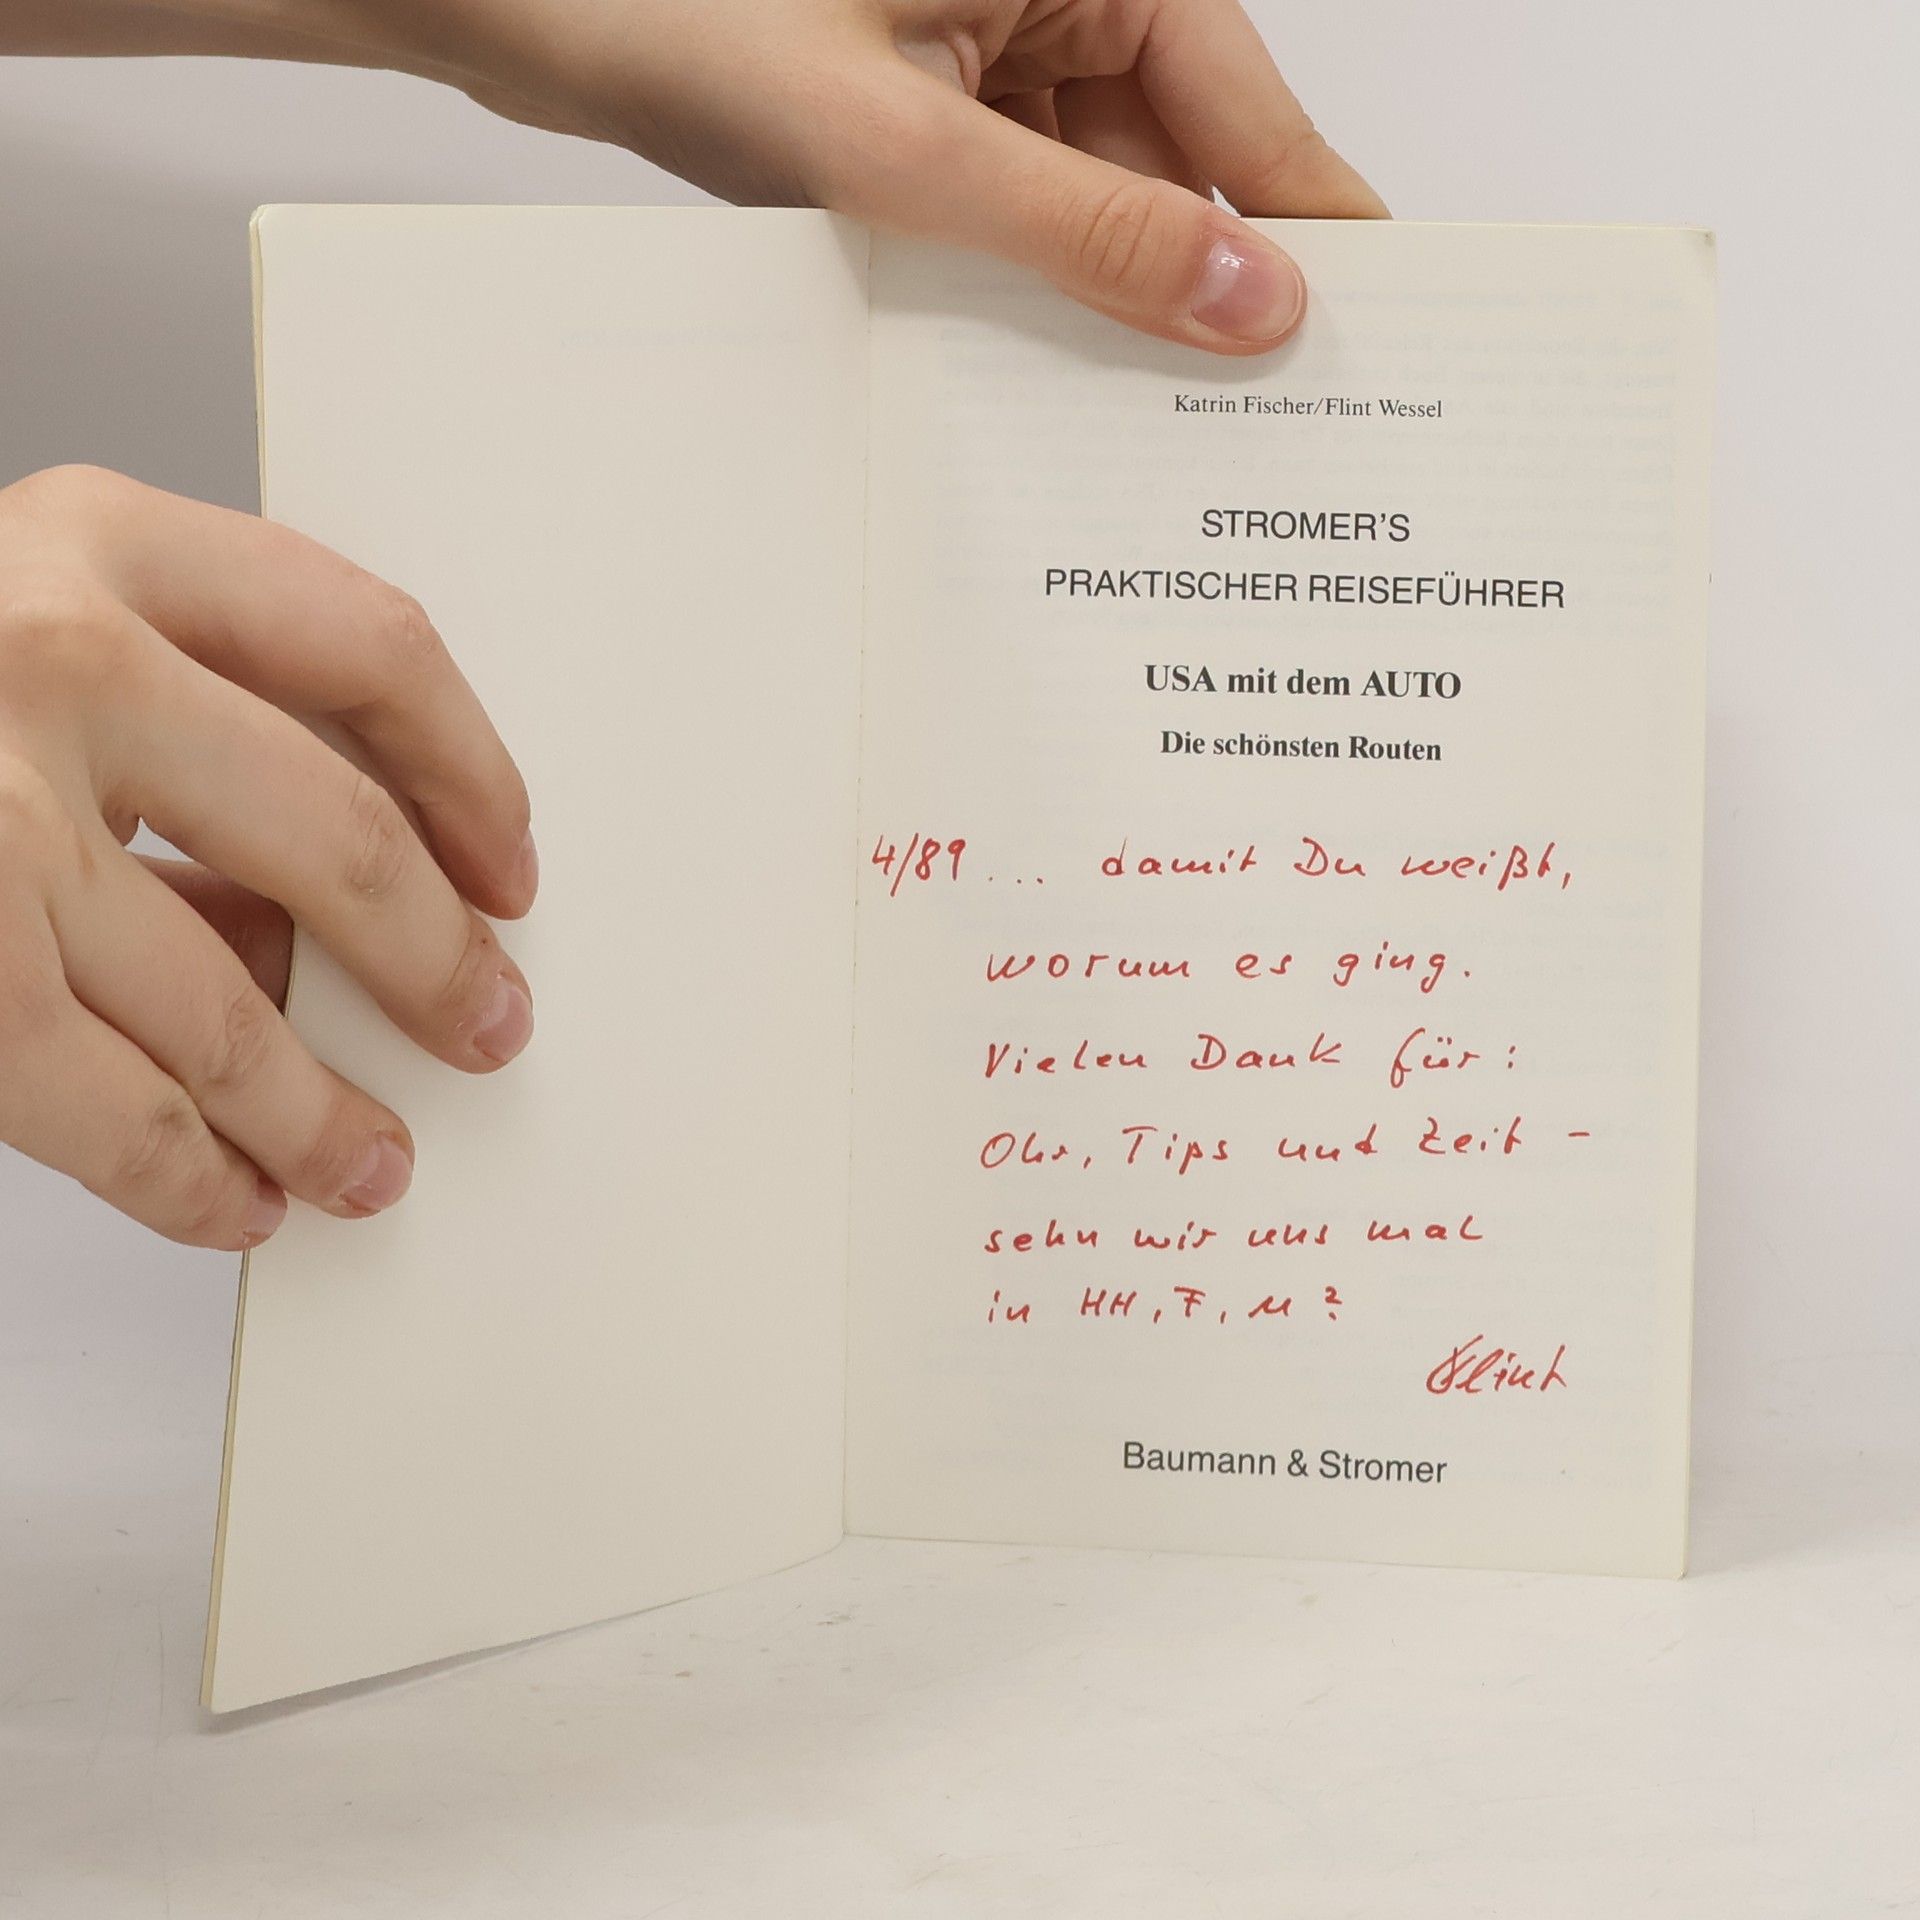 Katrin Fischer/Flint Wessel
STROMER'S
PRAKTISCHER REISEFÜHRER
USA mit dem AUTO
Die schönsten Routen
4/89 ... damit Du weißt,
worum es ging.
Vielen Dank für:
Ohr, Tips und Zeit -
sehn wir uns mal
in HH, F, M?
Flint
Baumann & Stromer